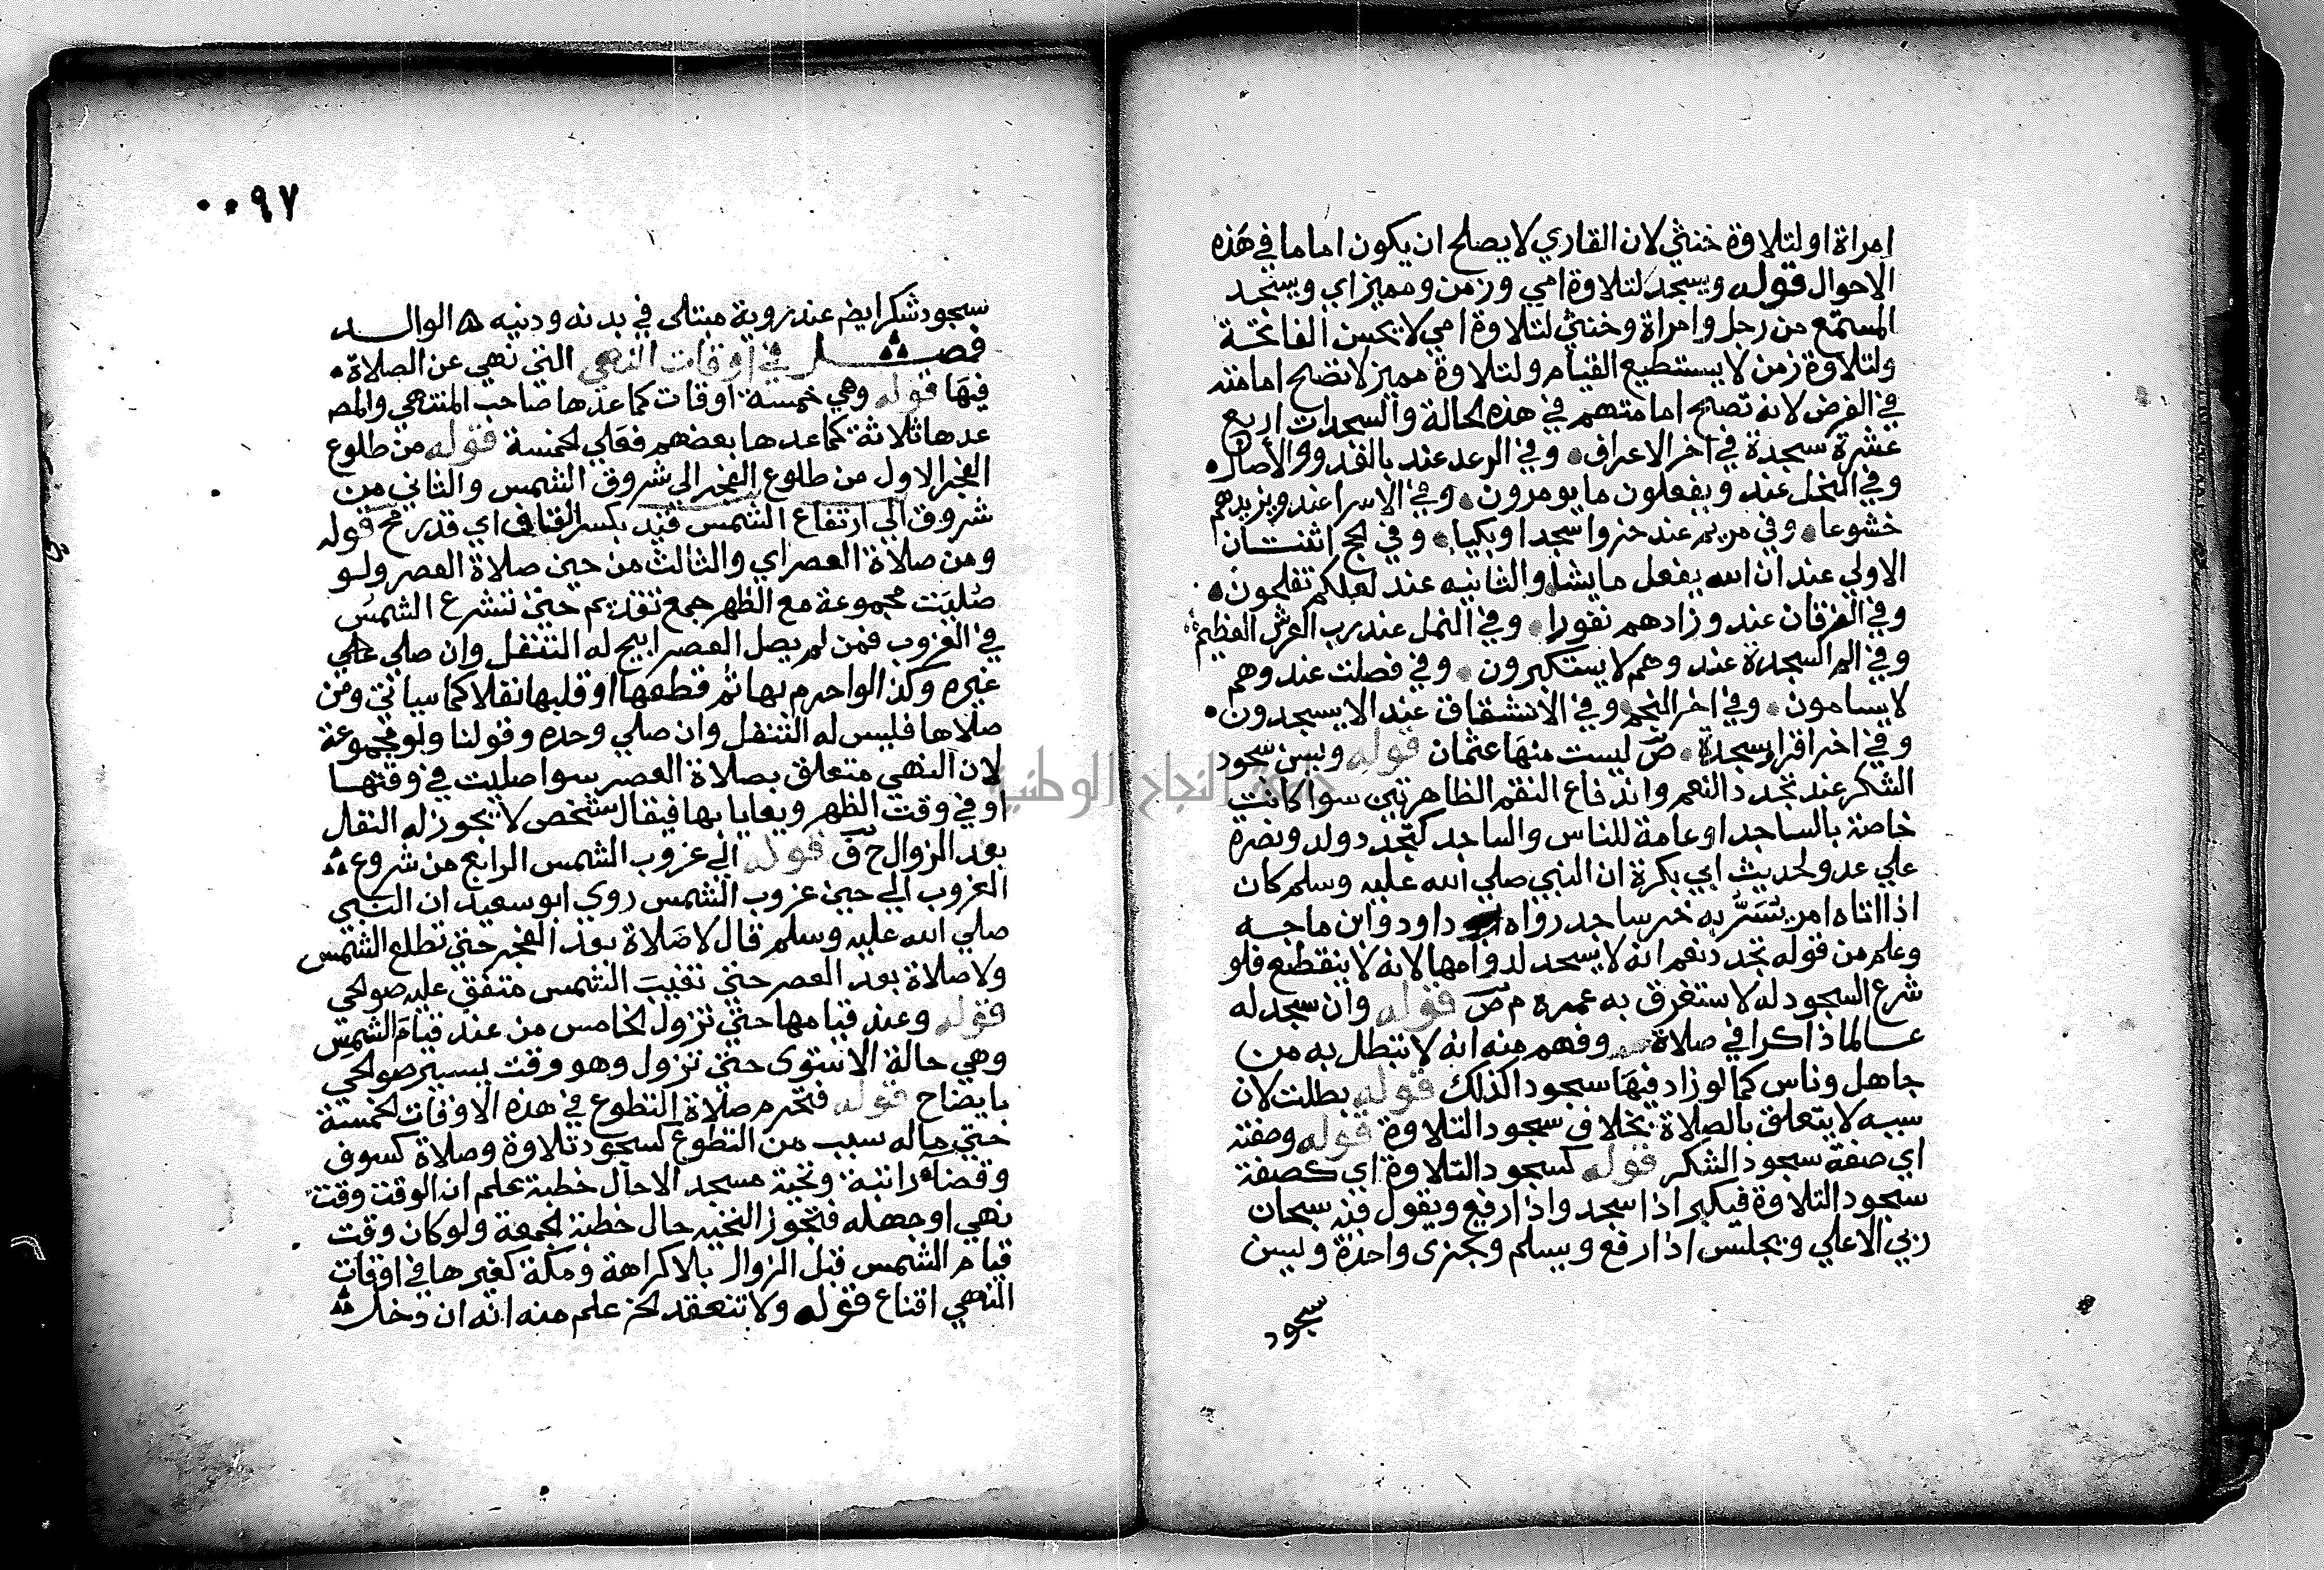 امراة او لتلاوة خنثي لان القاري لا يصلح ان يكون اماما في هذه
الاحوال قوله ويسجد لتلاوة امي وزمن ومميز اي ويسجد
المستمع من رجل وامراة وخنثي لتلاوة امي لا يحسن الفاتحة
ولتلاوة زمن لا يستطيع القيام ولتلاوة مميز لا تصلح امامته
في الفرض لانه تصح امامتهم في هذه الحالة والسجدات اربع
عشرة سجدة في اخر الاعراف وفي الرعد عند بالغدو والاصال
وفي النحل عند ويفعلون ما يومرون وفي الاسرا عند ويزيدهم
خشوعا وفي مريم عند خروا سجدا وبكيا وفي الحج اثنتان
الاولي عند ان الله يفعل ما يشا والثانيه عند لعلكم تفلحون
وفي الفرقان عند وزادهم نفورا وفي النمل عند رب العرش العظيم
وفي الم السجدة عند وهم لا يستكبرون وفي فصلت عند وهم
لا يسامون وفي اخر النجم وفي الانشقاق عند لا يسجدون
وفي اخر اقرا وسجدة ص ليست منها عثمان قوله ويسن سجود
الشكر عند تجدد النعم واندفاع النقم الظاهرتين سوا كانت
خاصة بالساجد او عامة للناس والساجد كتجدد ولد ونصرة
علي عدو لحديث ابي بكرة ان النبي صلي الله عليه وسلم كان
اذا اتاه امر يُسَرُّ به خر ساجد رواه ابو داود وابن ماجه
وعلم من قوله تجدد نعم انه لا يسجد لدوامها لانه لا ينقطع فلو
شرع السجود له لاستغرق به عمره م ص قوله وان سجد له
عالما ذاكرا في صلاة وفهم منه انه لا تبطل به من
جاهل وناس كما لو زاد فيها سجودا كذلك قوله بطلت لان
سببه لا يتعلق بالصلاة بخلاف سجود التلاوة قوله وصفته
اي صفة سجود الشكر قوله كسجود التلاوة اي كصفة
سجود التلاوة فيكبر اذا سجد واذا رفع ويقول فيه سبحان
ربي الاعلي ويجلس اذا رفع ويسلم ويجزى واحدة ويسن
سجود
٠٠٩٧
سجود شكر ايضم عند روية مبتلى في بدنه ودينه ه الوالد
فصل في اوقات النهي التي نهي عن الصلاة
فيها قوله وهي خمسة اوقات كما عدها صاحب المنتهي والمص
عدها ثلاثة كما عدها بعضهم فعلي الخمسة قوله من طلوع
الفجر الاول من طلوع الفجر الي شروق الشمس والثاني من
شروق الي ارتفاع الشمس قيد بكسر القاف اي قدر رمح قوله
ومن صلاة العصر اي والثالث من حين صلاة العصر ولو
صُليَت مجموعة مع الظهر جمع تقديم حتي تشرع الشمس
في الغروب فمن لم يصل العصر ابيح له التنفل وان صلي علي
غيره وكذا لو احرم بها ثم قطعها او قلبها نفلا كما سياتي ومن
صلاها فليس له التنفل وان صلي وحده وقولنا ولو مجموعة
لان النهي متعلق بصلاة العصر سوا صليت في وقتها
او في وقت الظهر ويعايا بها فيقال شخص لا يجوز له النفل
بعد الزوال ح ف قوله الي غروب الشمس الرابع من شروع
الغروب الي حين غروب الشمس روي ابو سعيد ان النبي
صلي الله عليه وسلم قال لا صَلاة بعد الفجر حتي تطلع الشمس
ولا صلاة بعد العصر حتي تغيب الشمس متفق عليه صوالحي
قوله وعند قيامها حتي تزول الخامس من عند قيام الشمس
وهي حالة الاستوى حتي تزول وهو وقت يسير صوالحي
بايضاح قوله فتحرم صلاة التطوع في هذه الاوقات الخمسة
حتي ماله سبب من التطوع كسجود تلاوة وصلاة كسوف
وقضا راتبة وتحية مسجد الا حال خطبة علم ان الوقت وقت
نهي او جهله فتجوز التحيه حال خطبة الجمعة ولو كان وقت
قيام الشمس قبل الزوال بلا كراهة ومكة كغيرها في اوقات
النهي اقناع قوله ولا تنعقد الخ علم منه انه ان دخل
جامعة النجاح الوطنية